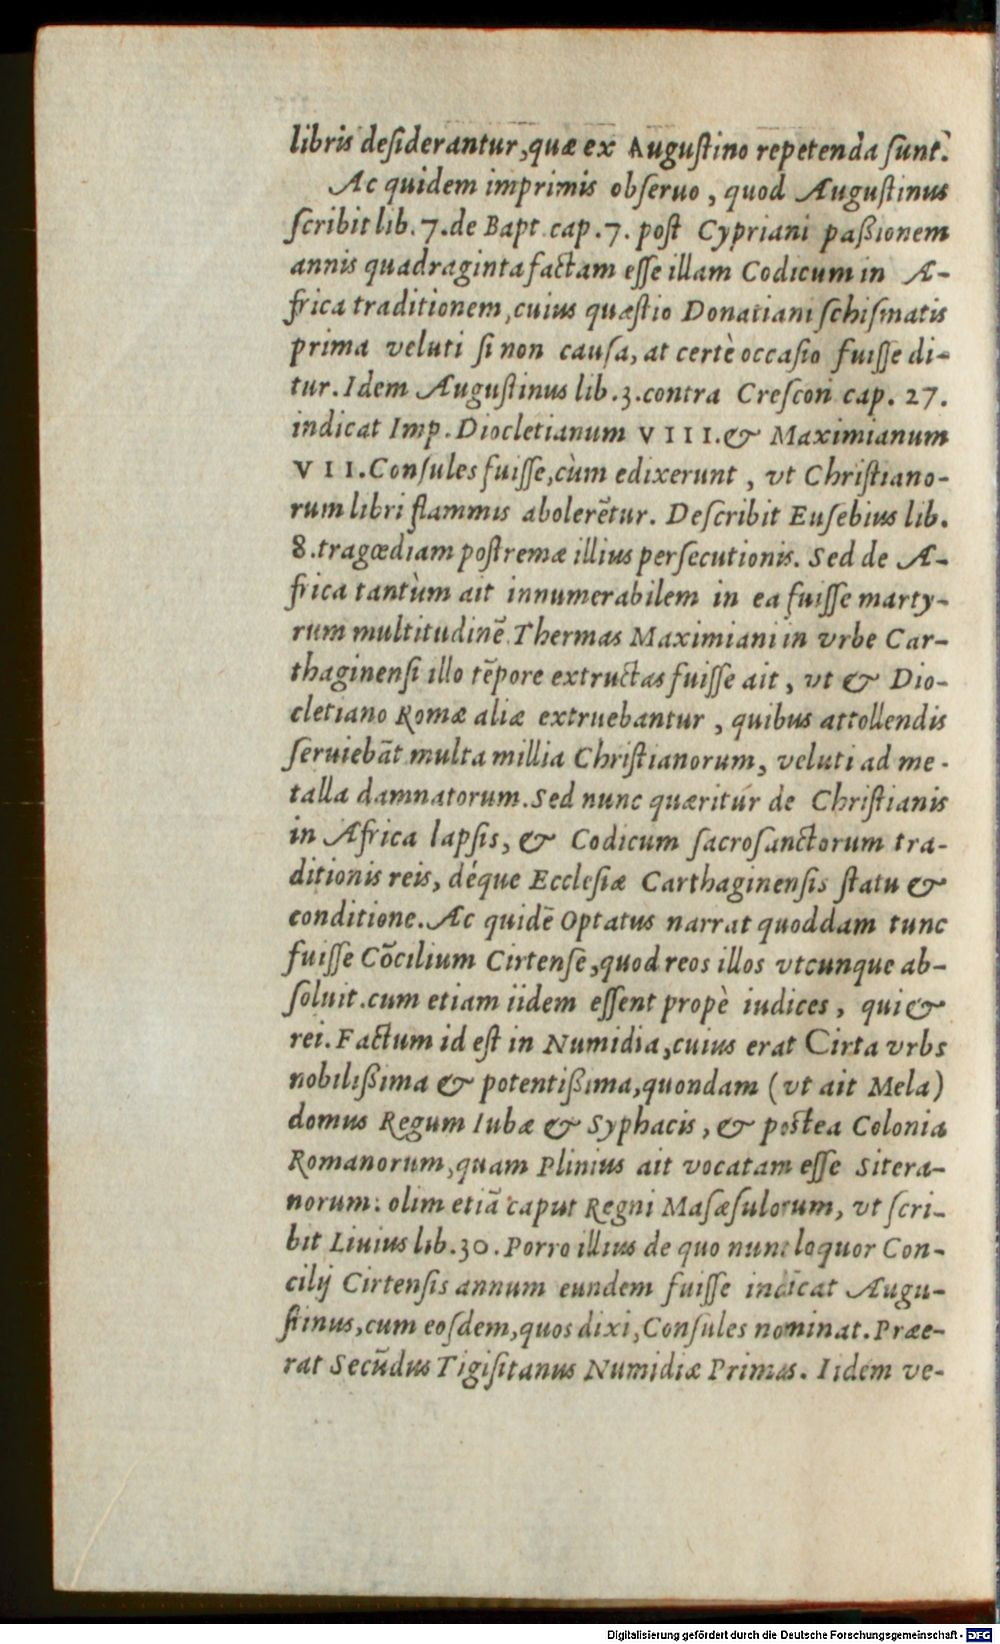 libris deſiderantur, quæ ex Auguſtino repetenda ſunt.
Ac quidem imprimis obſeruo, quod Auguſtinus
ſcribit lib. 7. de Bapt. cap. 7. poſt Cypriani paßionem
annis quadraginta factam eſſe illam Codicum in A-
frica traditionem, cuius quæſtio Donatiani ſchiſmatis
prima veluti ſi non cauſa, at certè occaſio fuiſſe di-
tur. Idem Auguſtinus lib. 3. contra Creſcon cap. 27.
indicat Imp. Diocletianum VIII. & Maximianum
VII. Conſules fuiſſe, cùm edixerunt, vt Chriſtiano-
rum libri flammis abolerẽtur. Deſcribit Euſebius lib.
8. tragœdiam poſtremæ illius perſecutionis. Sed de A-
frica tantùm ait innumerabilem in ea fuiſſe marty-
rum multitudinẽ. Thermas Maximiani in vrbe Car-
thaginenſi illo tẽpore extructas fuiſſe ait, vt & Dio-
cletiano Romæ aliæ extruebantur, quibus attollendis
ſeruiebãt multa millia Chriſtianorum, veluti ad me-
talla damnatorum. Sed nunc quæritur de Chriſtianis
in Africa lapſis, & Codicum ſacroſanctorum tra-
ditionis reis, déque Eccleſiæ Carthaginenſis ſtatu &
conditione. Ac quidẽ Optatus narrat quoddam tunc
fuiſſe Cõcilium Cirtenſe, quod reos illos vtcunque ab-
ſoluit. cum etiam iidem eſſent propè iudices, qui &
rei. Factum id eſt in Numidia, cuius erat Cirta vrbs
nobilißima & potentißima, quondam (vt ait Mela)
domus Regum Iubæ & Syphacis, & postea Colonia
Romanorum, quam Plinius ait vocatam eſſe Sitera-
norum: olim etiã caput Regni Maſæſulorum, vt ſcri-
bit Liuius lib. 30. Porro illius de quo nunc loquor Con-
cilij Cirtenſis annum eundem fuiſſe indicat Augu-
ſtinus, cum eoſdem, quos dixi, Conſules nominat. Præe-
rat Secũdus Tigiſitanus Numidiæ Primas. Iidem ve-
Digitalisierung gefördert durch die Deutsche Forschungsgemeinschaft - DFG